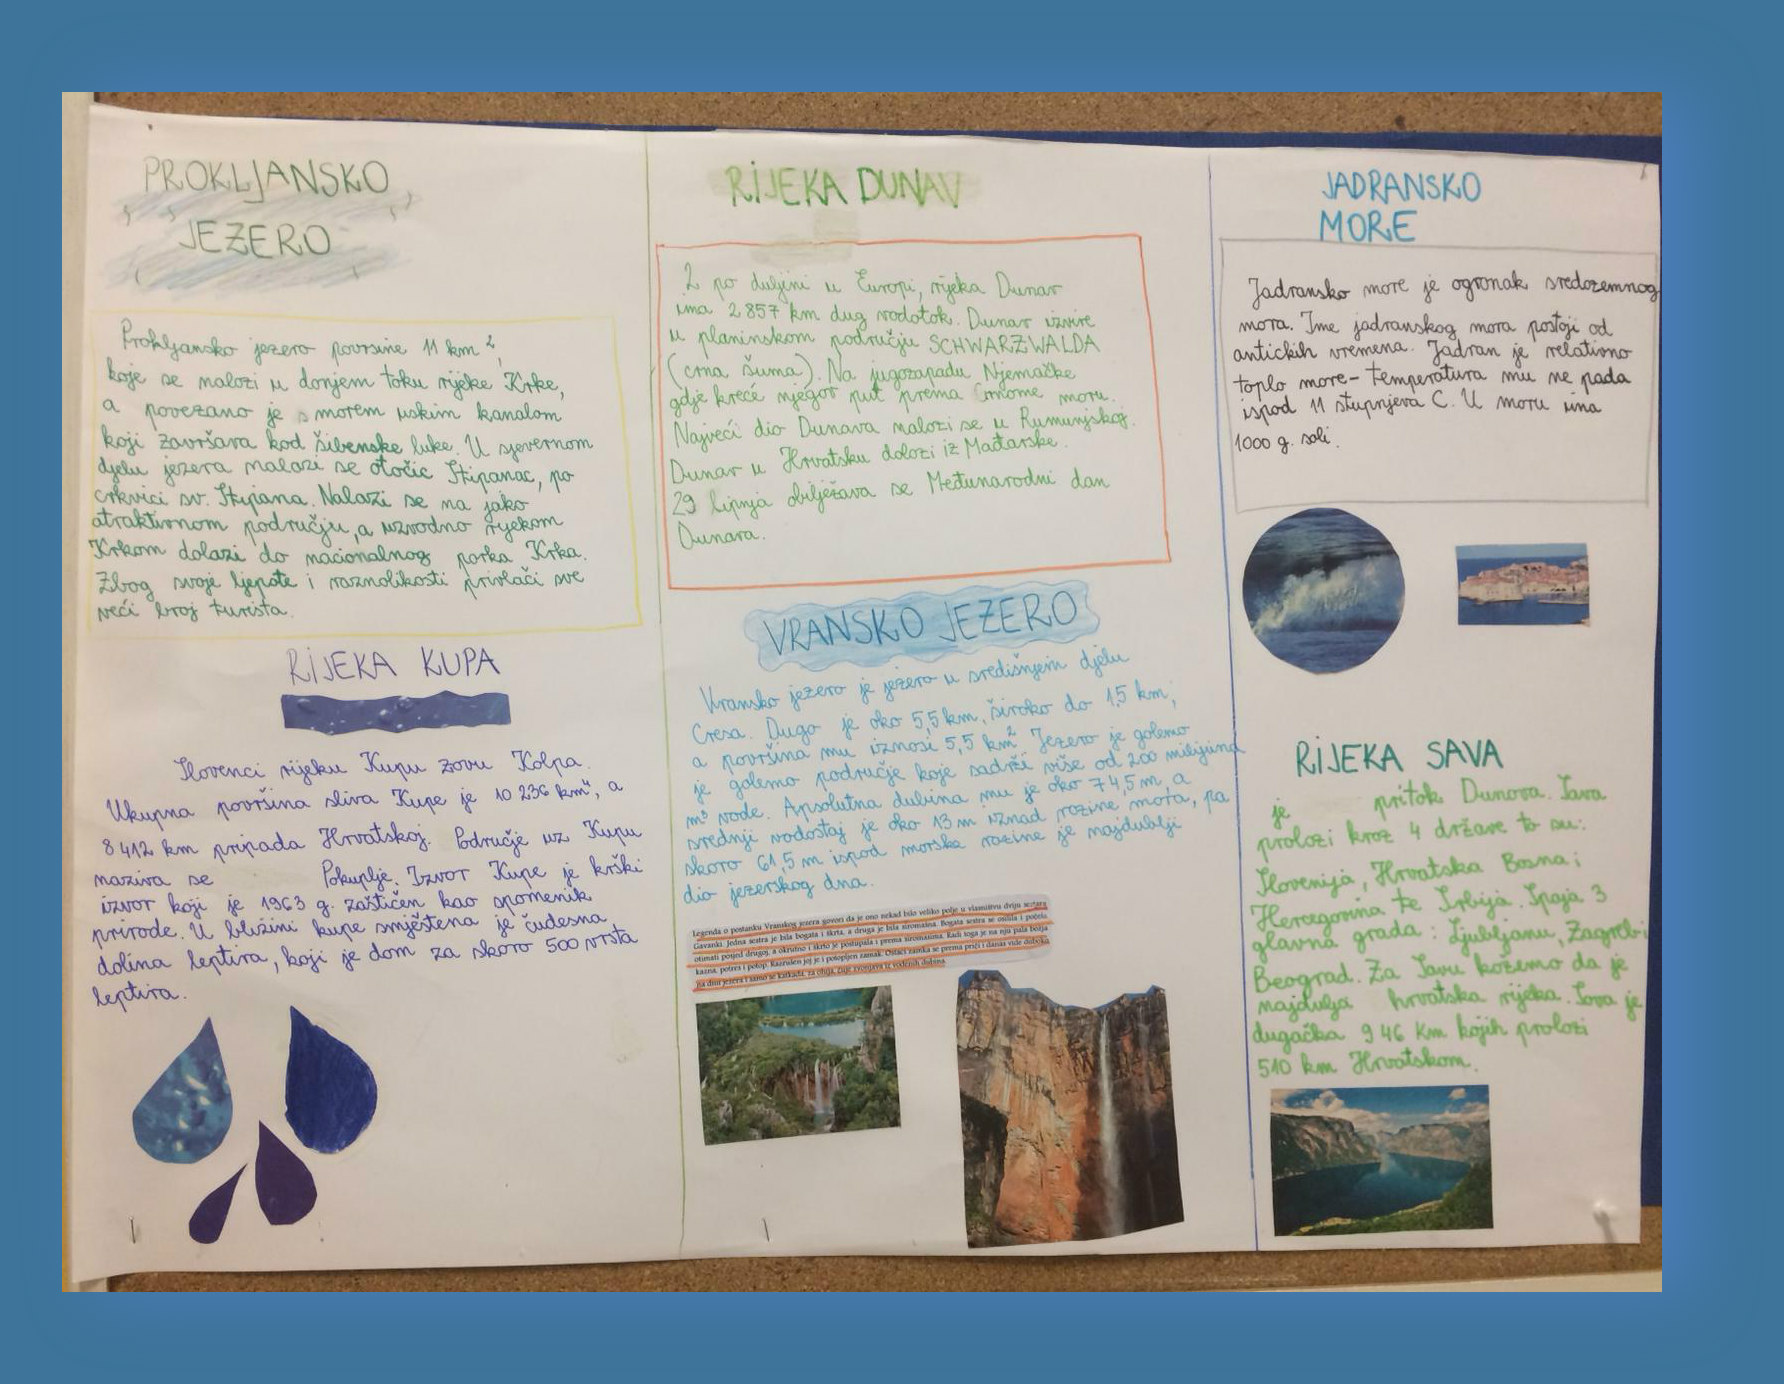 PROKLJANSKO
JEZERO
Prokljansko jezero površine 11 km²,
koje se nalazi u donjem toku rijeke Krke,
a povezano je s morem uskim kanalom
koji završava kod Šibenske luke. U sjevernom
djelu jezera nalazi se otočić Stipanac, po
crkvici sv. Stipana. Nalazi se na jako
atraktivnom području, a uzvodno rijekom
Krkom dolazi do nacionalnog parka Krka.
Zbog svoje ljepote i raznolikosti privlači sve
veći broj turista.
RIJEKA KUPA
Slovenci rijeku Kupu zovu Kolpa.
Ukupna površina sliva Kupe je 10 236 km", a
8 412 km pripada Hrvatskoj. Područje uz Kupu
naziva se Pokuplje. Izvor Kupe je krški
izvor koji je 1963 g. zaštićen kao spomenik
prirode. U blizini kupe smještena je čudesna
dolina leptira, koji je dom za skoro 500 vrsta
leptira.
RIJEKA DUNAV
2 po duljini u Europi, rijeka Dunav
ima 2 857 km dug vodotok. Dunav izvire
u planinskom području SCHWARZWALDA
(crna šuma). Na jugozapadu Njemačke
gdje kreće njegov put prema Crnome moru.
Najveći dio Dunava nalazi se u Rumunjskoj.
Dunav u Hrvatsku dolazi iz Mađarske.
29 lipnja obilježava se Međunarodni dan
Dunava.
VRANSKO JEZERO
Vransko jezero je jezero u središnjem djelu
Cresa. Dugo je oko 5,5 km, široko do 1,5 km,
a površina mu iznosi 5,5 km² Jezero je golemo
je golemo područje koje sadrži više od 200 milijuna
m³ vode. Apsolutna dubina mu je oko 74,5 m, a
srednji vodostaj je oko 13 m iznad razine mora, pa
skoro 61,5 m ispod morske razine je najdublji
dio jezerskog dna.
Legenda o postanku Vranskog jezera govori da je ono nekad bilo veliko polje u vlasništvu dviju sestara
Gavanki. Jedna sestra je bila bogata i škrta, a druga je bila siromašna. Bogata sestra se osilila i počela
otimati posjed drugoj, a okrutno i škrto je postupala i prema siromasima. Radi toga je na nju pala božja
kazna, potres i potop. Razrušen joj je i potopljen zamak. Ostaci zamka se prema priči i danas vide duboko
na dnu jezera i samo se katkada, za oluja, čuje zvonjava iz vodenih dubina.
JADRANSKO
MORE
Jadransko more je ogronak sredozemnog
mora. Ime jadranskog mora postoji od
antičkih vremena. Jadran je relativno
toplo more - temperatura mu ne pada
ispod 11 stupnjeva C. U moru ima
1000 g. soli.
RIJEKA SAVA
je pritok Dunava. Sava
prolazi kroz 4 države to su:
Slovenija, Hrvatska Bosna i
Hercegovina te Srbija. Spaja 3
glavna grada: Ljubljanu, Zagreb i
Beograd. Za Savu kažemo da je
najdulja hrvatska rijeka. Sava je
dugačka 946 km kojih prolazi
510 km Hrvatskom.